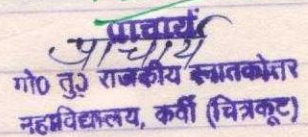 प्राचार्य
प्राचार्य
गो० तु० राजकीय स्नातकोत्तर
महाविद्यालय, कर्वी (चित्रकूट)